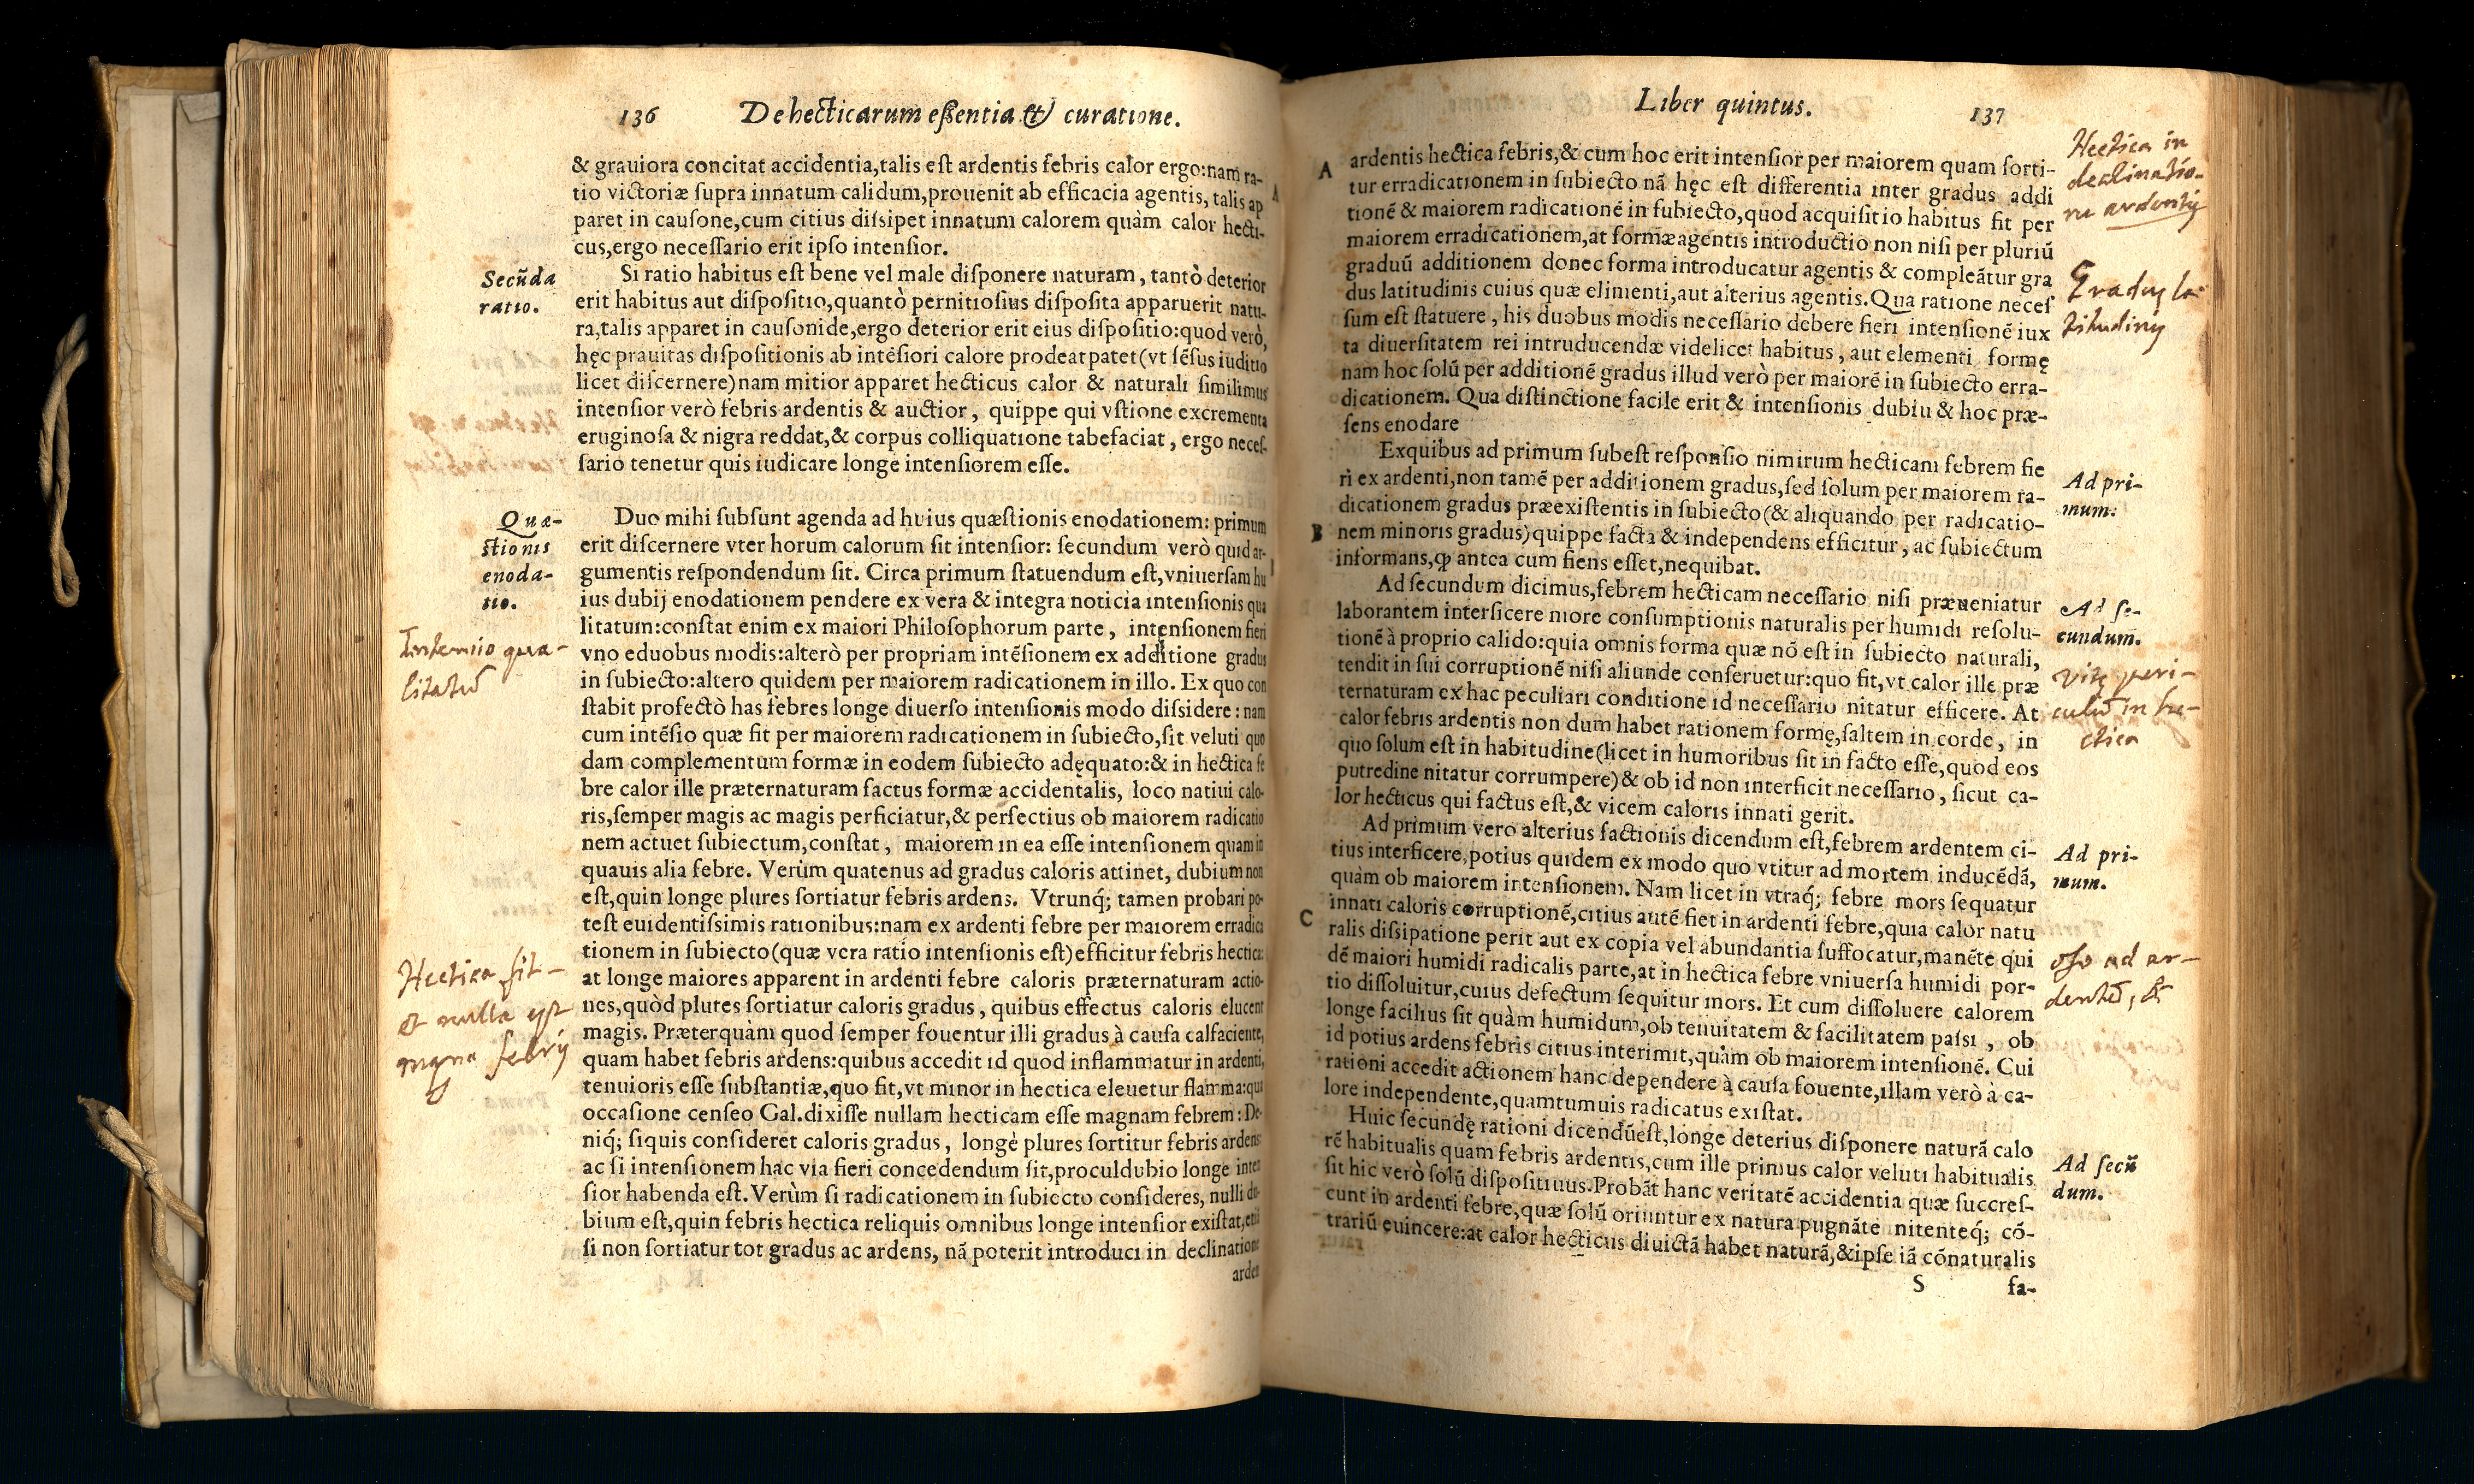 136 De hecticarum eſſentia & curatione.
& grauiora concitat accidentia,talis eſt ardentis febris calor ergo:nam ra-
tio victoriæ ſupra innatum calidum,prouenit ab efficacia agentis, talis ap
paret in cauſone,cum citius diſsipet innatum calorem quàm calor hecti-
cus,ergo neceſſario erit ipſo intenſior.
Secũda
ratio.
Si ratio habitus eſt bene vel male diſponere naturam, tantò deterior
erit habitus aut diſpoſitio,quantò pernitioſius diſpoſita apparuerit natu-
ra,talis apparet in cauſonide,ergo deterior erit eius diſpoſitio:quod verò,
hęc prauitas diſpoſitionis ab intẽſiori calore prodeat patet(vt ſẽſus iuditio
licet diſcernere)nam mitior apparet hecticus calor & naturali ſimilimus
intenſior verò febris ardentis & auctior, quippe qui vſtione excrementa
eruginoſa & nigra reddat,& corpus colliquatione tabefaciat, ergo neceſ-
ſario tenetur quis iudicare longe intenſiorem eſſe.
Quæ-
ſtionis
enoda-
tio.
Duo mihi ſubſunt agenda ad huius quæſtionis enodationem: primum
erit diſcernere vter horum calorum ſit intenſior: ſecundum verò quid ar-
gumentis reſpondendum ſit. Circa primum ſtatuendum eſt,vniuerſam hu
ius dubij enodationem pendere ex vera & integra noticia intenſionis qua
litatum:conſtat enim ex maiori Philoſophorum parte, intenſionem fieri
Intensio qua-
litatũ
vno eduobus modis:alterò per propriam intẽſionem ex additione gradus
in ſubiecto:altero quidem per maiorem radicationem in illo. Ex quo con
ſtabit profectò has febres longe diuerſo intenſionis modo diſsidere: nam
cum intẽſio quæ fit per maiorem radicationem in ſubiecto,ſit veluti quo
dam complementum formæ in eodem ſubiecto adęquato:& in hectica fe
bre calor ille præternaturam factus formæ accidentalis, loco natiui calo-
ris,ſemper magis ac magis perficiatur,& perfectius ob maiorem radicatio
nem actuet ſubiectum,conſtat, maiorem in ea eſſe intenſionem quam in
quauis alia febre. Verùm quatenus ad gradus caloris attinet, dubium non
eſt,quin longe plures ſortiatur febris ardens. Vtrunq́; tamen probari po-
teſt euidentiſsimis rationibus:nam ex ardenti febre per maiorem erradica
tionem in ſubiecto(quæ vera ratio intenſionis eſt)efficitur febris hectica:
Hectica fit
et nulla est
magna febris
at longe maiores apparent in ardenti febre caloris præternaturam actio-
nes,quòd plures ſortiatur caloris gradus, quibus effectus caloris elucent
magis. Præterquàm quod ſemper fouentur illi gradus à cauſa calfaciente,
quam habet febris ardens:quibus accedit id quod inflammatur in ardenti,
tenuioris eſſe ſubſtantiæ,quo fit,vt minor in hectica eleuetur flamma:qua
occaſione cenſeo Gal.dixiſſe nullam hecticam eſſe magnam febrem: De-
niq́; ſiquis conſideret caloris gradus, longè plures ſortitur febris ardens
ac ſi intenſionem hac via fieri concedendum ſit,proculdubio longe inten
ſior habenda eſt. Verùm ſi radicationem in ſubiecto conſideres, nulli du-
bium eſt,quin febris hectica reliquis omnibus longe intenſior exiſtat,etiã
ſi non ſortiatur tot gradus ac ardens, nã poterit introduci in declinatione
arden
Liber quintus. 137
A
ardentis hectica febris,& cum hoc erit intenſior per maiorem quam ſorti-
tur erradicationem in ſubiecto nã hęc eſt differentia inter gradus addi
tionẽ & maiorem radicationẽ in ſubiecto,quod acquiſitio habitus fit per
maiorem erradicationem,at formæ agentis introductio non niſi per pluriũ
graduũ additionem donec forma introducatur agentis & compleãtur gra
dus latitudinis cuius quæ elimenti,aut alterius agentis.Qua ratione neceſ
ſum eſt ſtatuere, his duobus modis neceſſario debere fieri intenſionẽ iux
ta diuerſitatem rei intruducendæ videlicet habitus, aut elementi formę
nam hoc ſolũ per additionẽ gradus illud verò per maiorẽ in ſubiecto erra-
dicationem. Qua diſtinctione facile erit & intenſionis dubiu & hoc præ-
ſens enodare
Hectica in
declinatio-
ne ardentis
Gradus la-
titudinis
Exquibus ad primum ſubeſt reſponſio nimirum hecticam febrem fie
ri ex ardenti,non tamẽ per additionem gradus,ſed ſolum per maiorem ra-
dicationem gradus præexiſtentis in ſubiecto(& aliquando per radicatio-
B
nem minoris gradus)quippe facta & independens efficitur, ac ſubiectum
informans,ꝙ antea cum fiens eſſet,nequibat.
Ad pri-
mum.
Ad ſecundum dicimus,febrem hecticam neceſſario niſi præueniatur
laborantem interficere more conſumptionis naturalis per humidi reſolu-
tionẽ à proprio calido:quia omnis forma quæ nõ eſt in ſubiecto naturali,
tendit in ſui corruptionẽ niſi aliunde conſeruetur:quo fit,vt calor ille præ
ternaturam ex hac peculiari conditione id neceſſario nitatur efficere. At
calor febris ardentis non dum habet rationem formę,ſaltem in corde, in
quo ſolum eſt in habitudine(licet in humoribus ſit in facto eſſe,quod eos
putredine nitatur corrumpere)& ob id non interficit neceſſario, ſicut ca-
lor hecticus qui factus eſt,& vicem caloris innati gerit.
Ad ſe-
cundum.
Vitę peri-
culũ in he-
ctica
Ad primum vero alterius factionis dicendum eſt,febrem ardentem ci-
tius interficere,potius quidem ex modo quo vtitur ad mortem inducẽdã,
quàm ob maiorem intenſionem. Nam licet in vtraq́; febre mors ſequatur
C
innati caloris corruptionẽ,citius autẽ fiet in ardenti febre,quia calor natu
ralis diſsipatione perit aut ex copia vel abundantia ſuffocatur,manẽte qui
dẽ maiori humidi radicalis parte,at in hectica febre vniuerſa humidi por-
tio diſſoluitur,cuius defectum ſequitur mors. Et cum diſſoluere calorem
longe facilius ſit quàm humidum,ob tenuitatem & facilitatem paſsi, ob
id potius ardens febris citius interimit,quàm ob maiorem intenſionẽ. Cui
rationi accedit actionem hanc dependere à cauſa fouente,illam verò à ca-
lore independente,quamtumuis radicatus exiſtat.
Ad pri-
mum.
ad ar-
dentẽ, &
Huic ſecundę rationi dicendũeſt,longe deterius diſponere naturã calo
rẽ habitualis quam febris ardentis,cum ille primus calor veluti habitualis
ſit hic verò ſolũ diſpoſitiuus.Probãt hanc veritatẽ accidentia quæ ſuccreſ-
cunt in ardenti febre,quæ ſolũ oriuntur ex natura pugnãte nitenteq́; cõ-
trariũ euincere:at calor hecticus diuictã habet naturã,&ipſe iã cõnaturalis
Ad ſecũ
dum.
S fa-